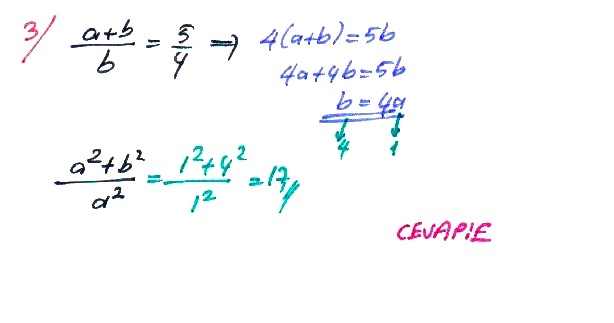 3/ (a+b)/b = 5/4 ⇒ 4(a+b)=5b
4a+4b=5b
b=4a
4 1
(a²+b²)/a² = (1²+4²)/1² = 17//
CEVAP:E